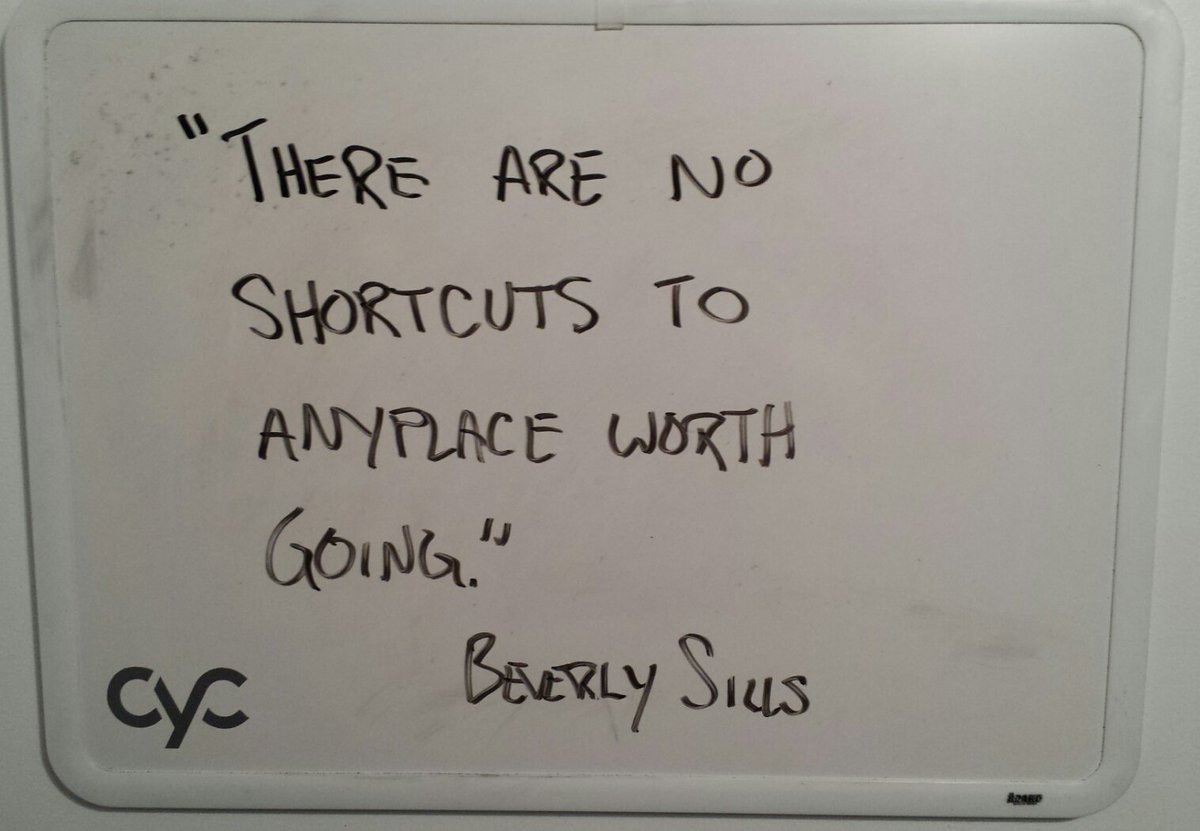 "THERE ARE NO
SHORTCUTS TO
ANYPLACE WORTH
GOING."
BEVERLY SILLS
cyc